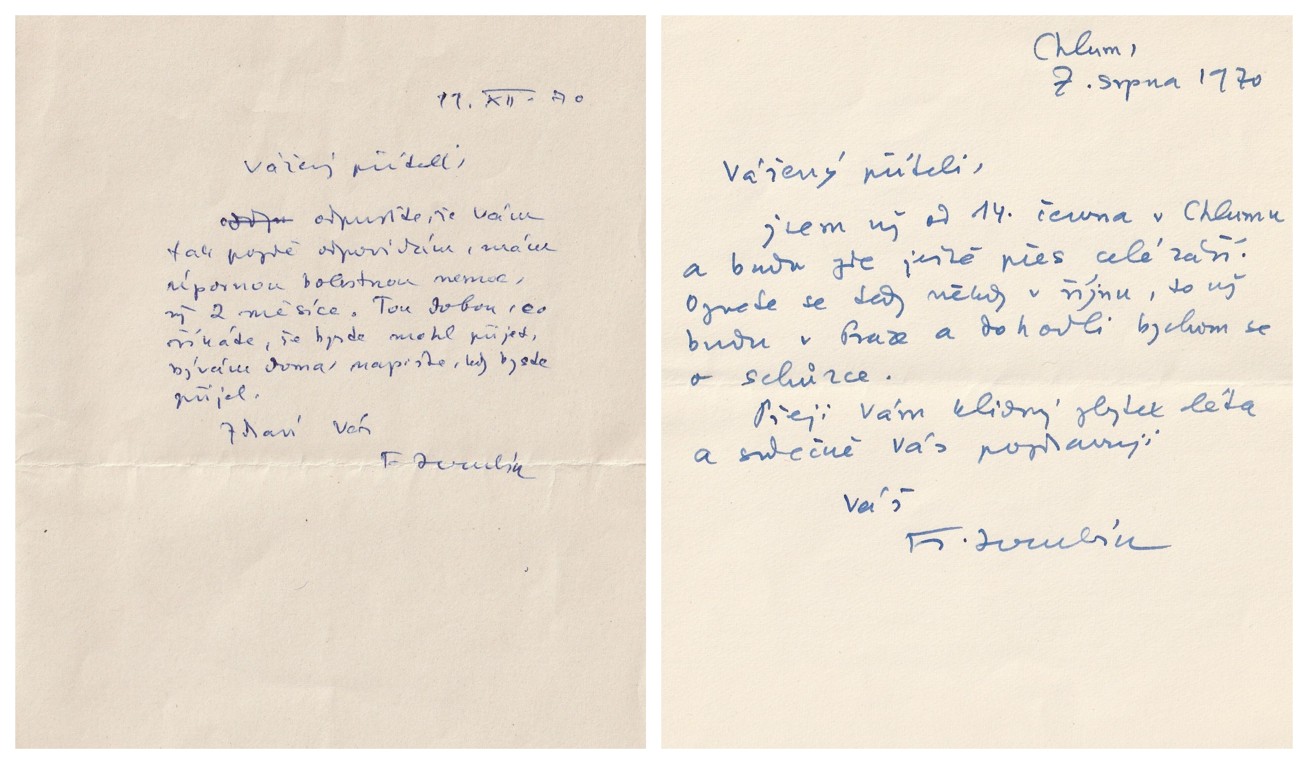 11. XII. 70
Vážený příteli,
odpusťte, že Vám
tak pozdě odpovídám, mám
úpornou bolestnou nemoc,
už 2 měsíce. Tou dobou, co
říkáte, že byste mohl přijet,
bývám doma, napište, kdy byste
přijel.
Zdraví Váš
F. Hrubín
Chlum,
7. srpna 1970
Vážený příteli,
jsem už od 14. června v Chlumu
a budu zde ještě přes celé září.
Ozvěte se tedy někdy v říjnu, to už
budu v Praze a dohodli bychom se
o schůzce.
Přeji Vám klidný zbytek léta
a srdečně Vás pozdravuji
Váš
Fr. Hrubín